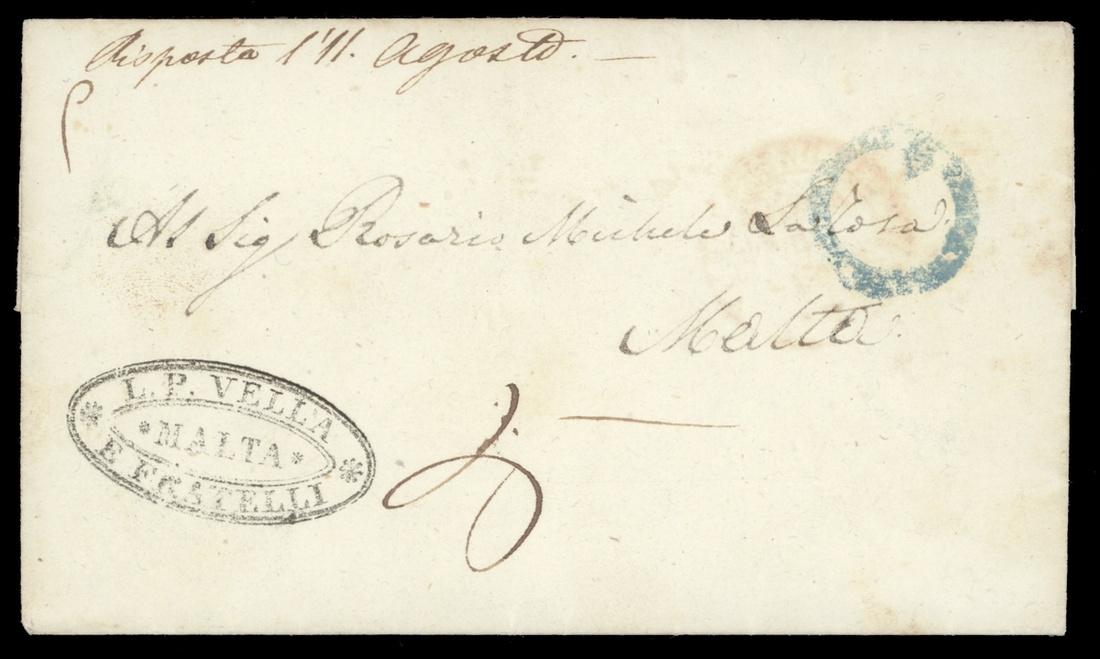 Risposta l'11. Agosto. —
Al Sig Rosario Michele La Rosa
Malta.
L. P. VELLA
* MALTA *
E FRATELLI